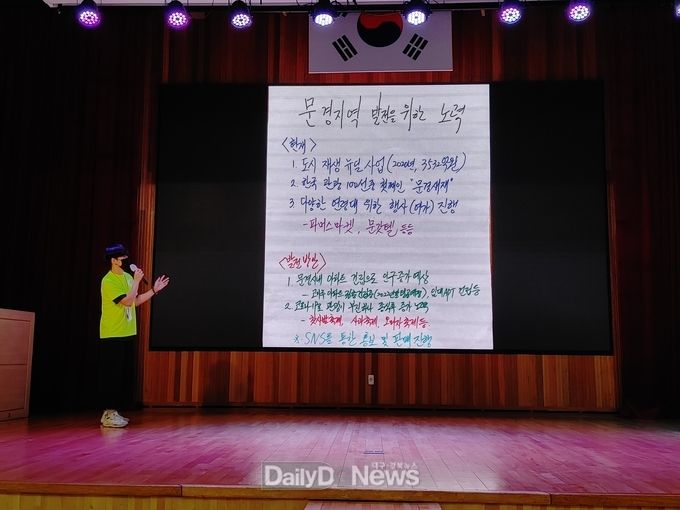 문경지역 발전을 위한 노력
<현재>
1. 도시 재생 뉴딜 사업 (2020년, 3532억원)
2. 한국 관광 100선중 첫째인 "문경새재"
3 다양한 연령대 위한 행사(여가) 진행
- 파머스마켓, 문캉텔 등등
<발전방안>
1. 문경시내 아파트 건립으로 인구증가 예상
건립등
2. 코로나19로 관광이
축제, 사과축제, 오미자축제 등
※ SNS를 통한 홍보 및 판매 진행
DailyD News
대구·경북뉴스